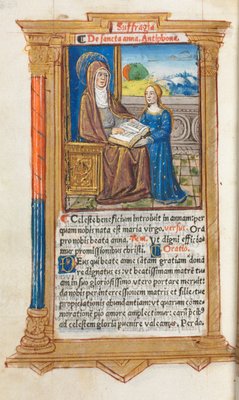 Suffragia
De sancta anna. Antiphona.
Celeste beneficium introivit in annam: per
quam nobis nata est maria virgo. versus. Ora
pro nobis beata anna. Res. Ut digni efficia⸗
mur promissionibus christi. Oratio.
Deus qui beate anne tātam gratiam dona
re dignatus es: ut beatissimam matrē tuā
in suo gloriosissimo utero portare meruit:
da nobis per intercessionem matris et filie: tue
propiciationis abundantiam: ut quarum cōme⸗
morationē pio amore amplectimur: earū p̄cib⁹
ad celestem gloriā pervenire valeamus. Per do.